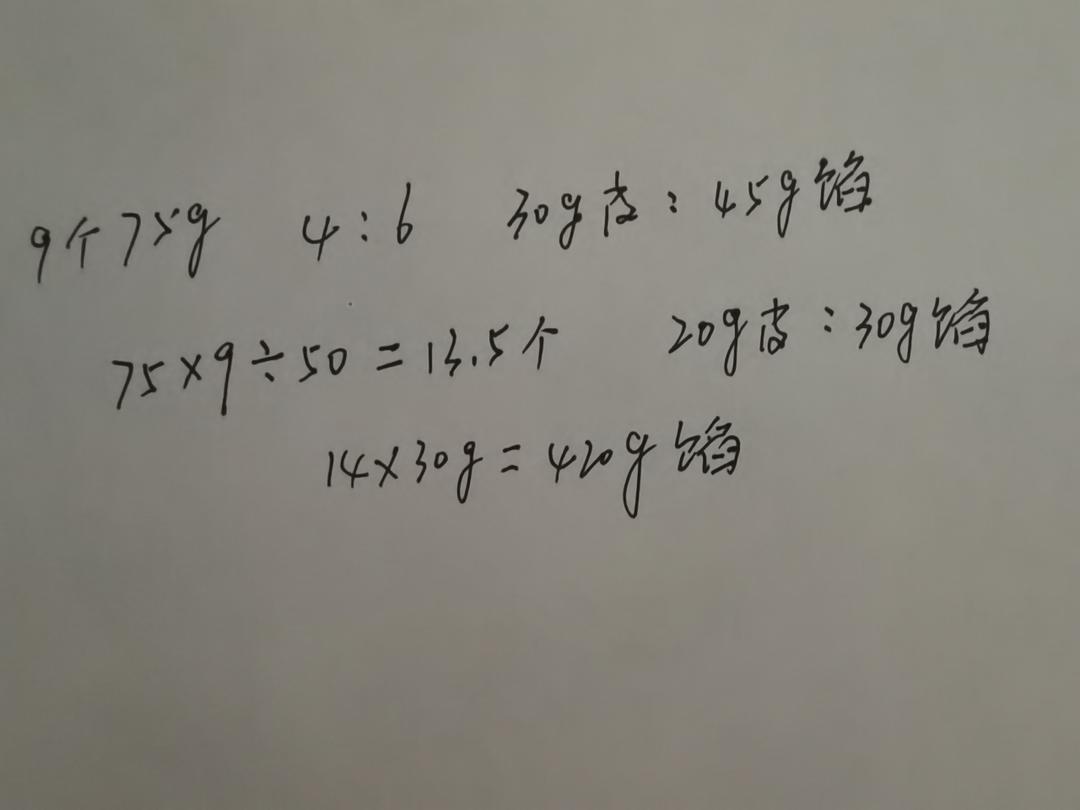 9个75g 4:6 30g皮:45g馅
75×9÷50=13.5个 20g皮:30g馅
14×30g=420g馅